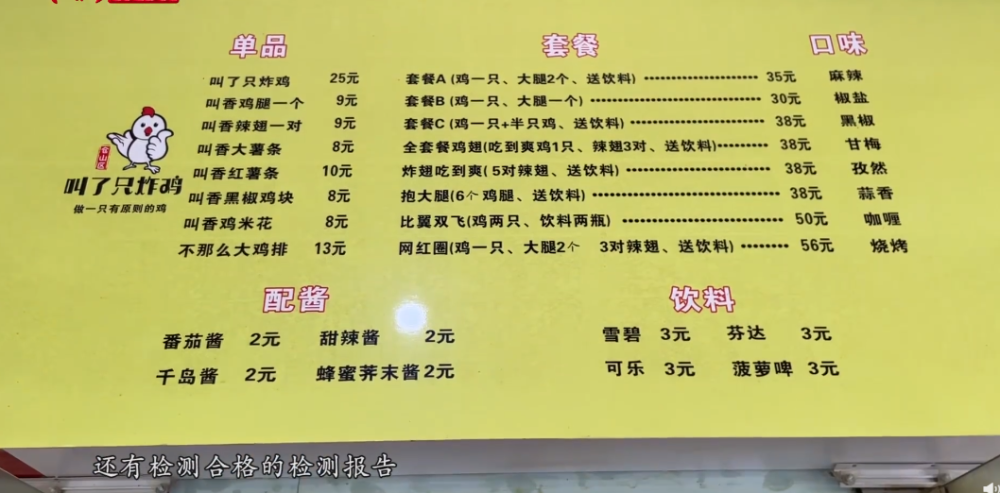 单品 套餐 口味
叫了只炸鸡 25元 套餐A (鸡一只、大腿2个、送饮料) 35元 麻辣
叫香鸡腿一个 9元 套餐B (鸡一只、大腿一个) 30元 椒盐
叫香辣翅一对 9元 套餐C (鸡一只+半只鸡、送饮料) 38元 黑椒
叫香大薯条 8元 全套餐鸡翅(吃到爽鸡1只、辣翅3对、送饮料) 38元 甘梅
叫香红薯条 10元 炸翅吃到爽(5对辣翅、送饮料) 38元 孜然
叫香黑椒鸡块 8元 抱大腿(6个鸡腿、送饮料) 38元 蒜香
叫香鸡米花 8元 比翼双飞(鸡两只、饮料两瓶) 50元 咖喱
不那么大鸡排 13元 网红圈(鸡一只、大腿2个 3对辣翅、送饮料) 56元 烧烤
仓山区
叫了只炸鸡
做一只有原则的鸡
配酱 饮料
番茄酱 2元 甜辣酱 2元 雪碧 3元 芬达 3元
千岛酱 2元 蜂蜜荠末酱 2元 可乐 3元 菠萝啤 3元
还有检测合格的检测报告